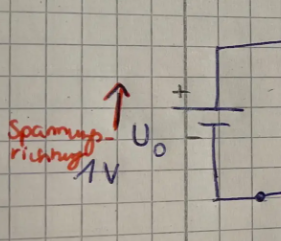 +
Spannungs-
richtung
U₀
-
1V